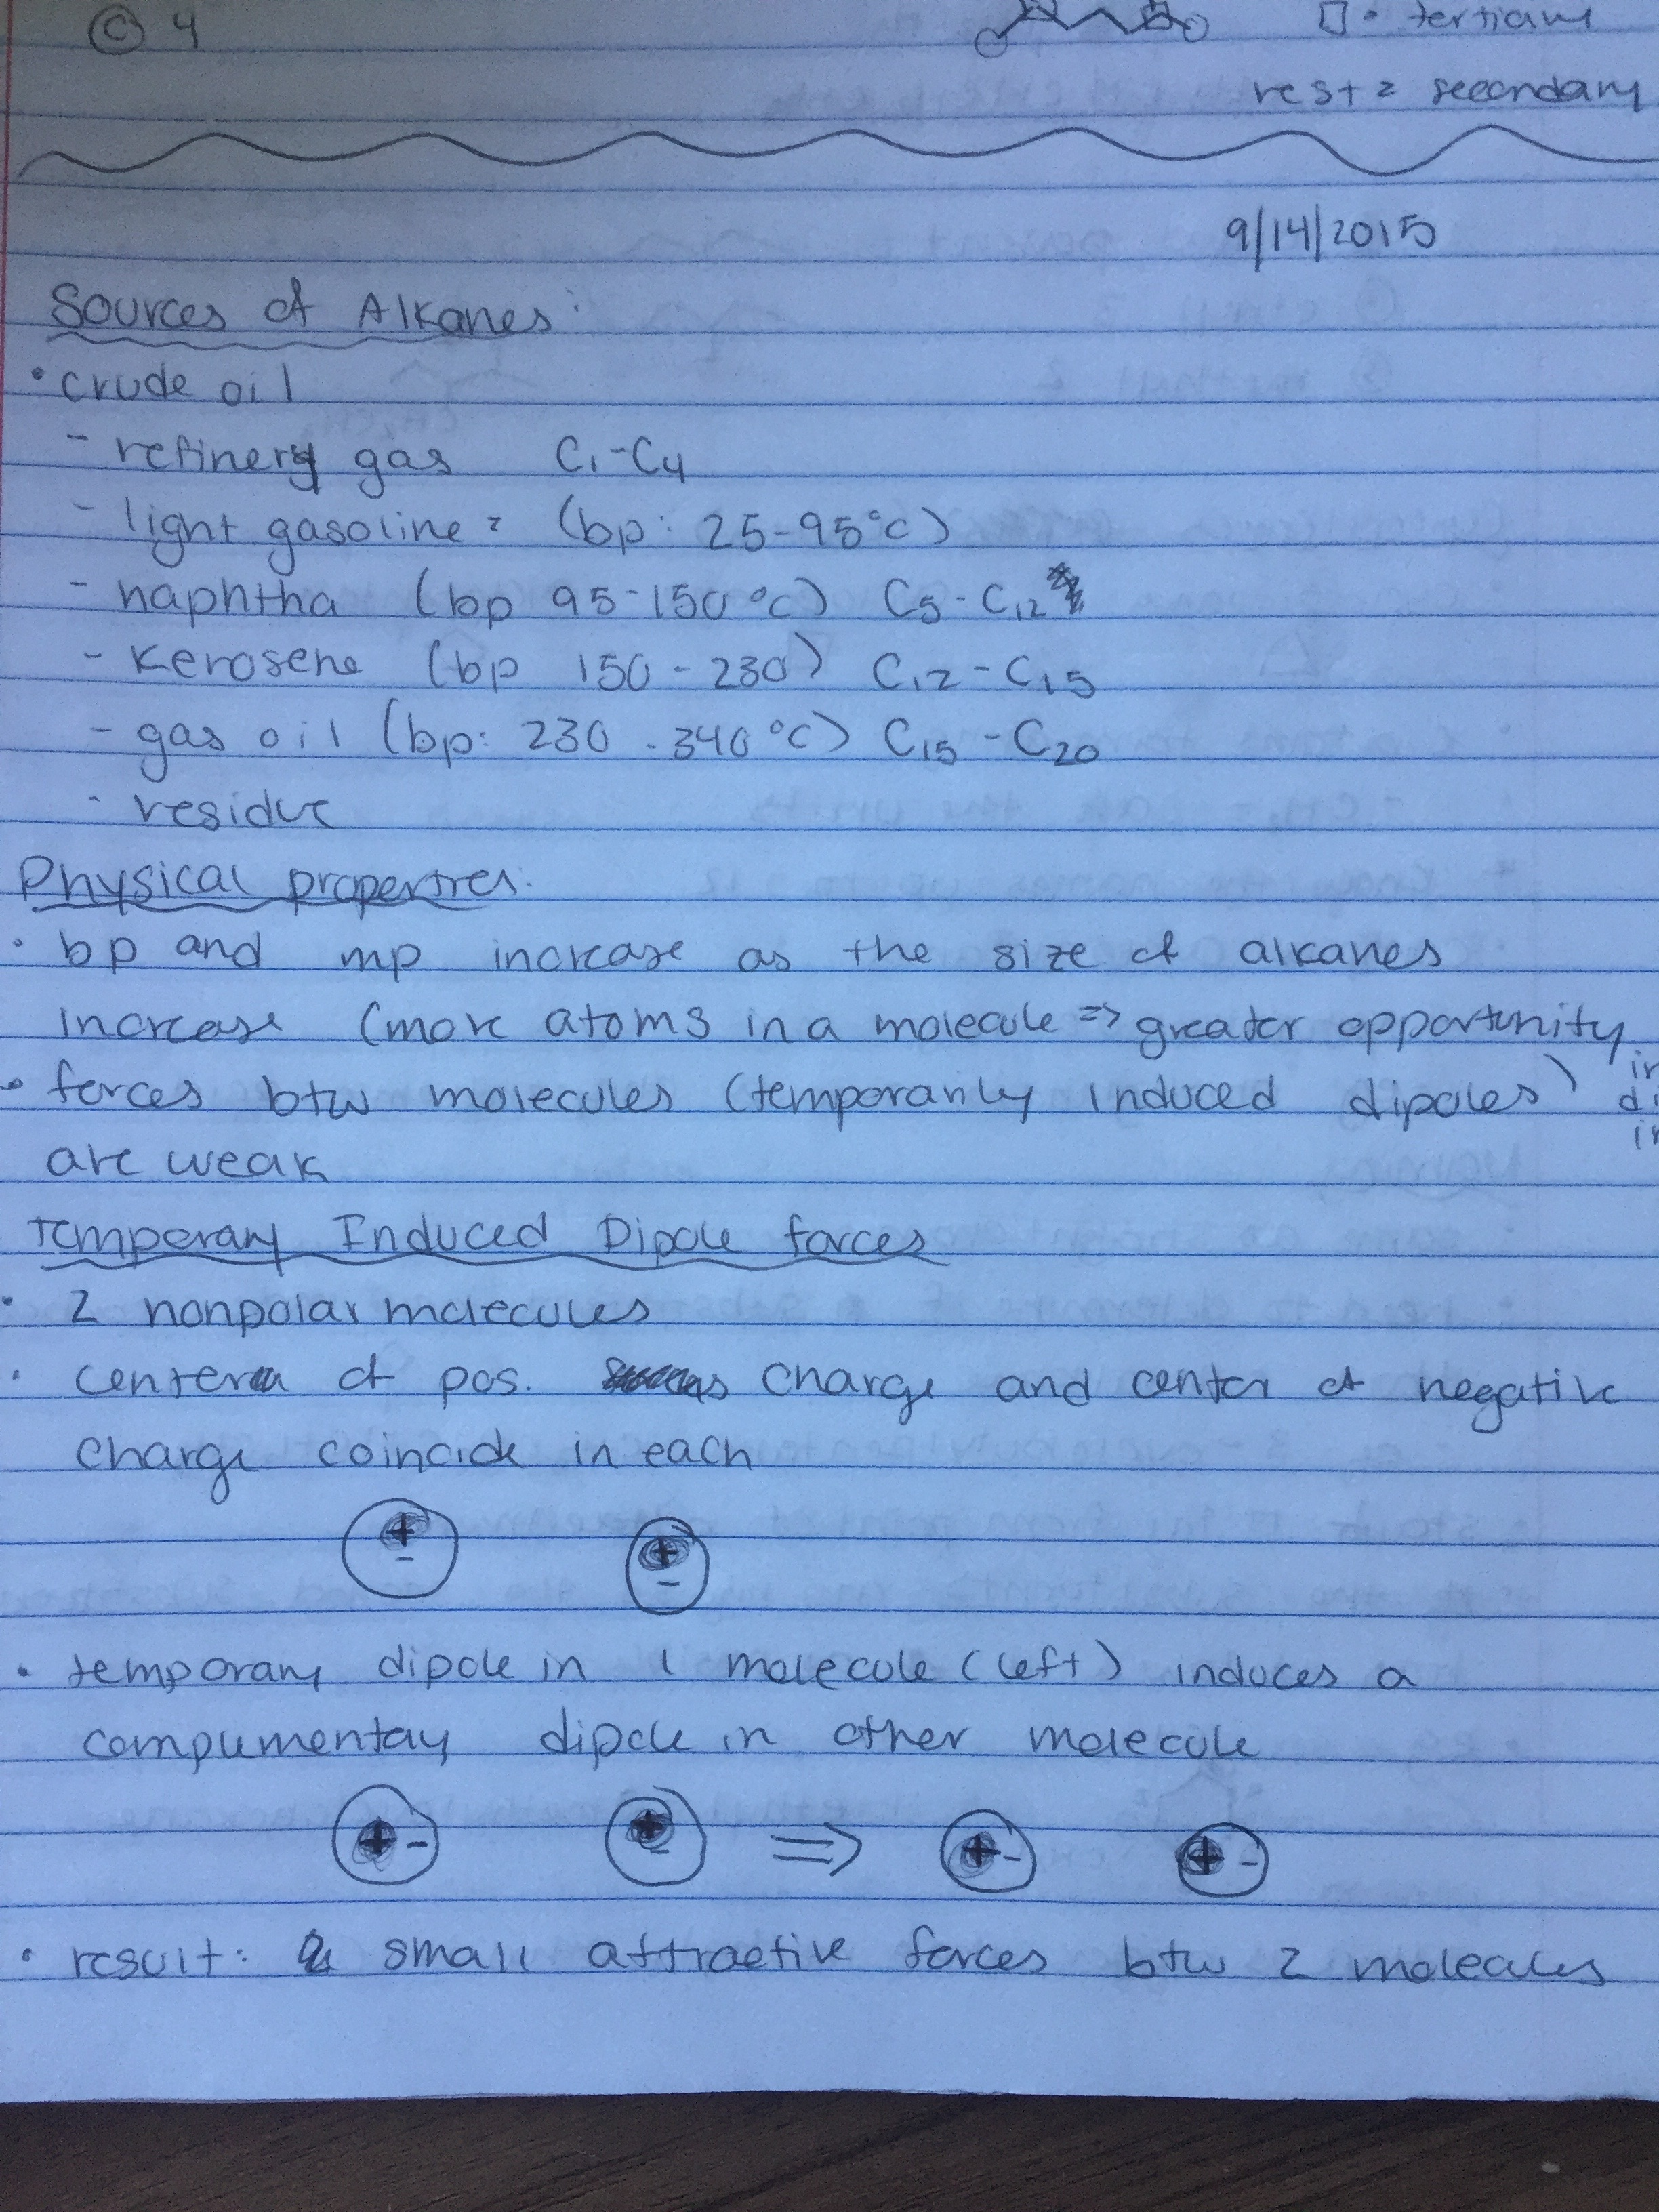 © 4
□ = tertiary
rest = secondary
9/14/2015
Sources of Alkanes:
• crude oil
- refinery gas C₁-C₄
- light gasoline = (bp: 25-95°C)
- naphtha (bp 95-150°C) C₅-C₁₂
- kerosene (bp 150-230) C₁₂-C₁₅
- gas oil (bp: 230-340°C) C₁₅-C₂₀
- residue
Physical properties:
• bp and mp increase as the size of alkanes
increase (more atoms in a molecule => greater opportunity
• forces btw molecules (temporarily induced dipoles)
are weak
Temporary Induced Dipole forces
• 2 nonpolar molecules
• center of pos. charge and center of negative
charge coincide in each
+ +
- -
• temporary dipole in 1 molecule (left) induces a
complementay dipole in other molecule
+ - + - => + - + -
• result: small attractive forces btw 2 molecules